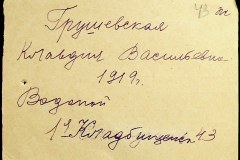 43
Грушевская
Клавдия Васильевна
1919г.
Водопой
1я Кладбищенск 43